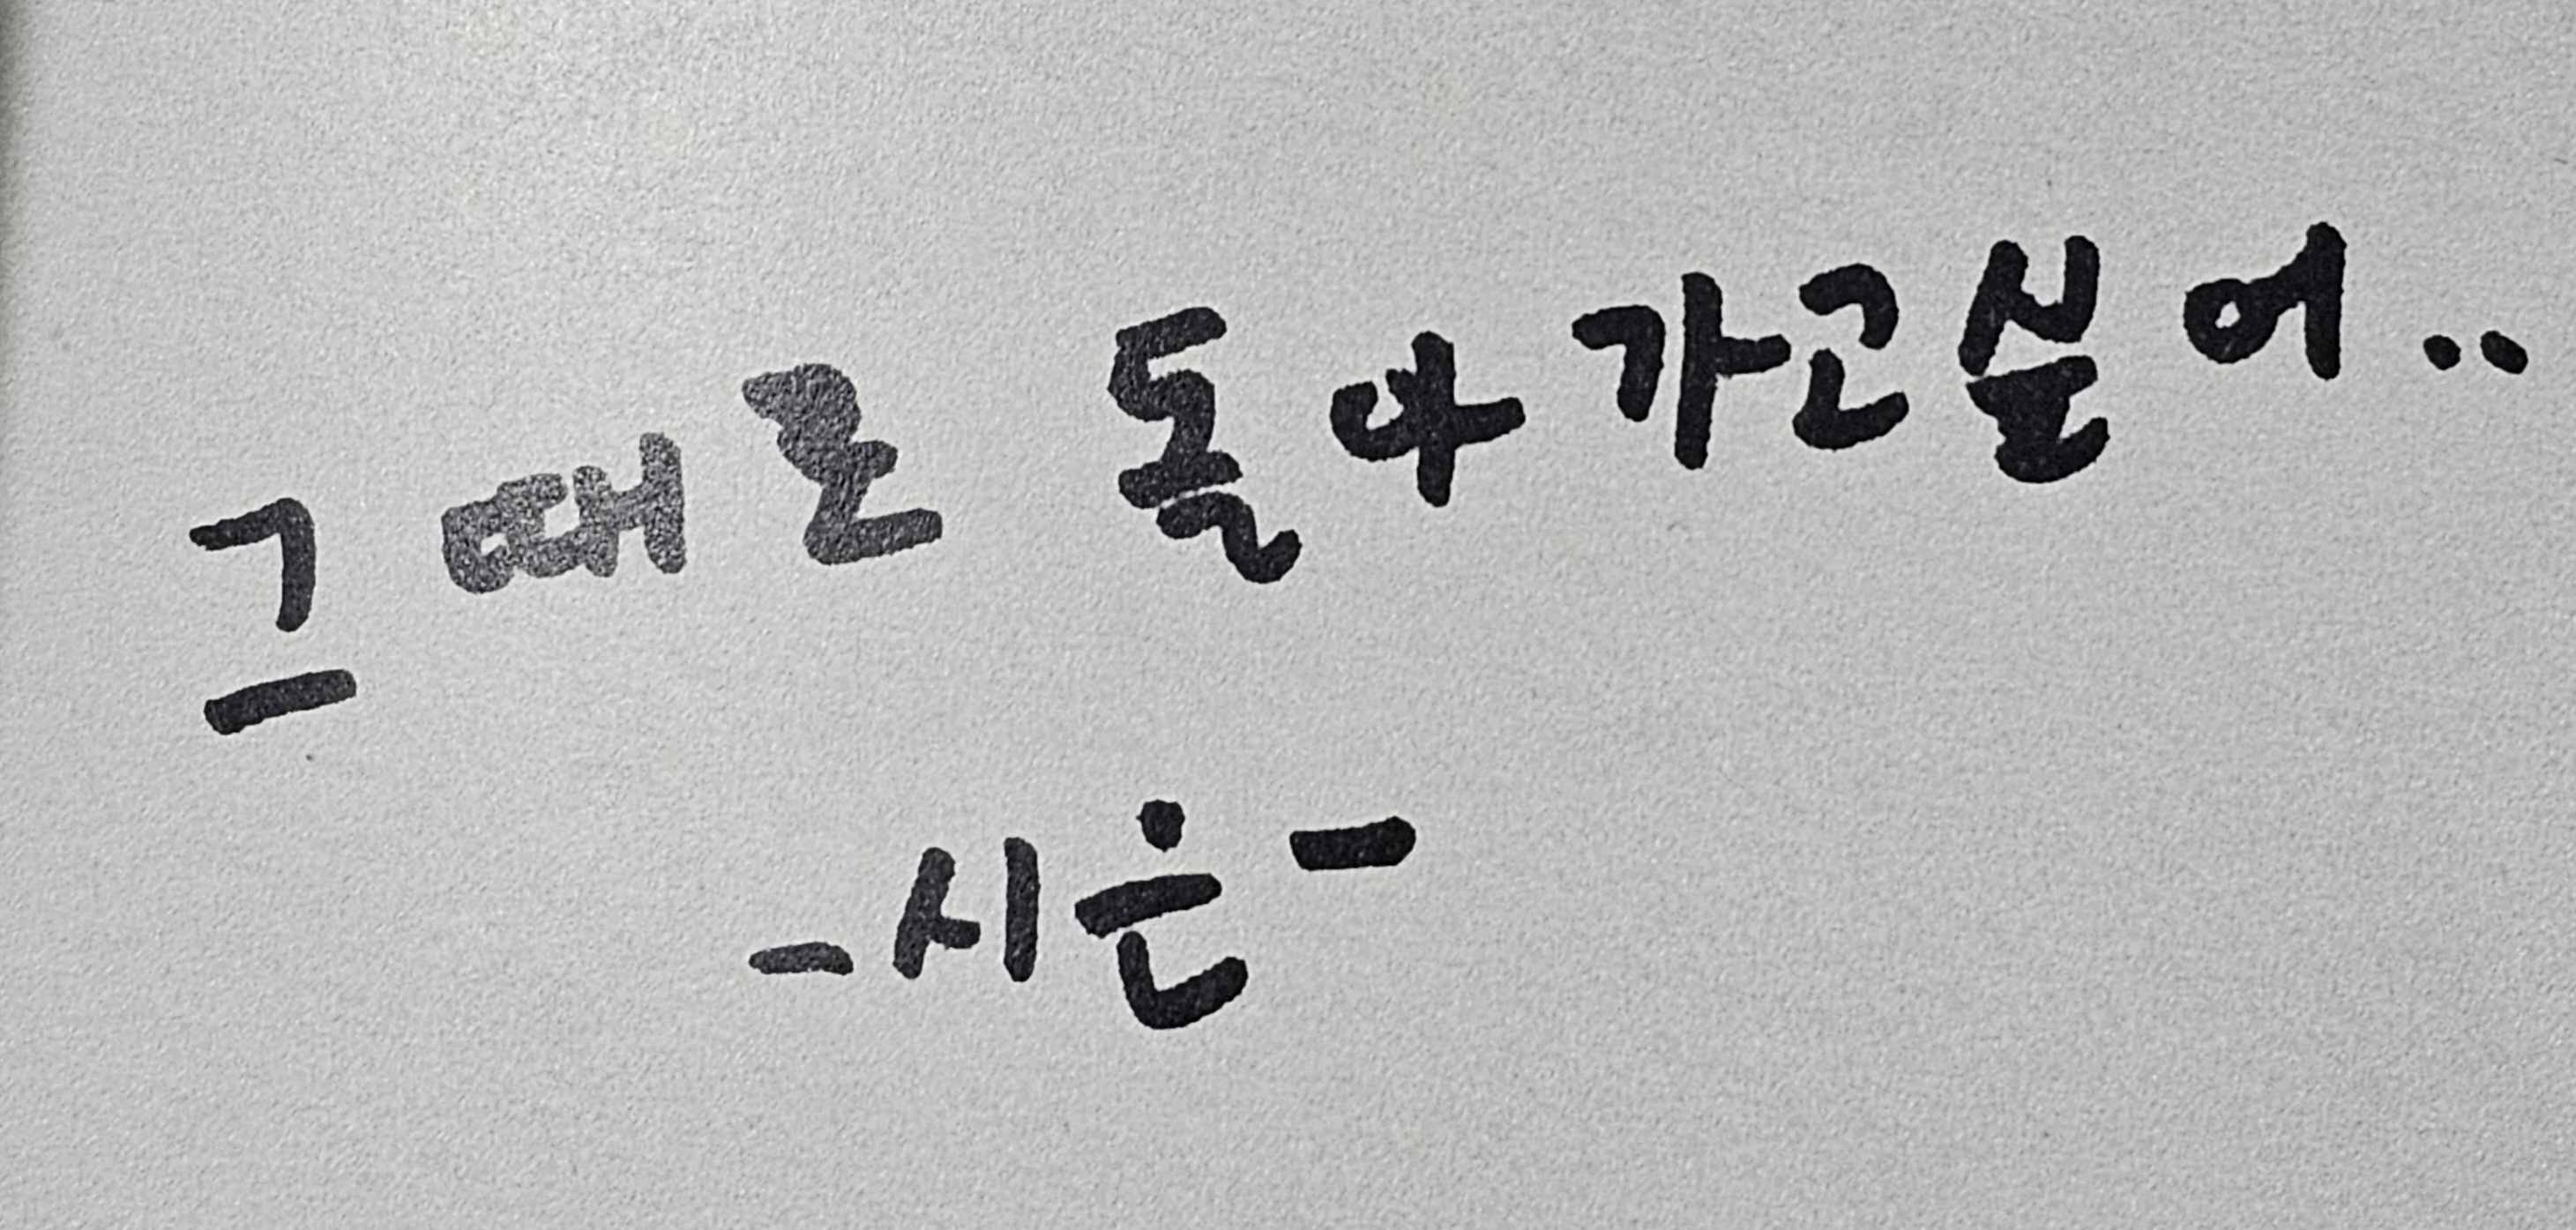 그때로 돌아가고싶어..
-시은-